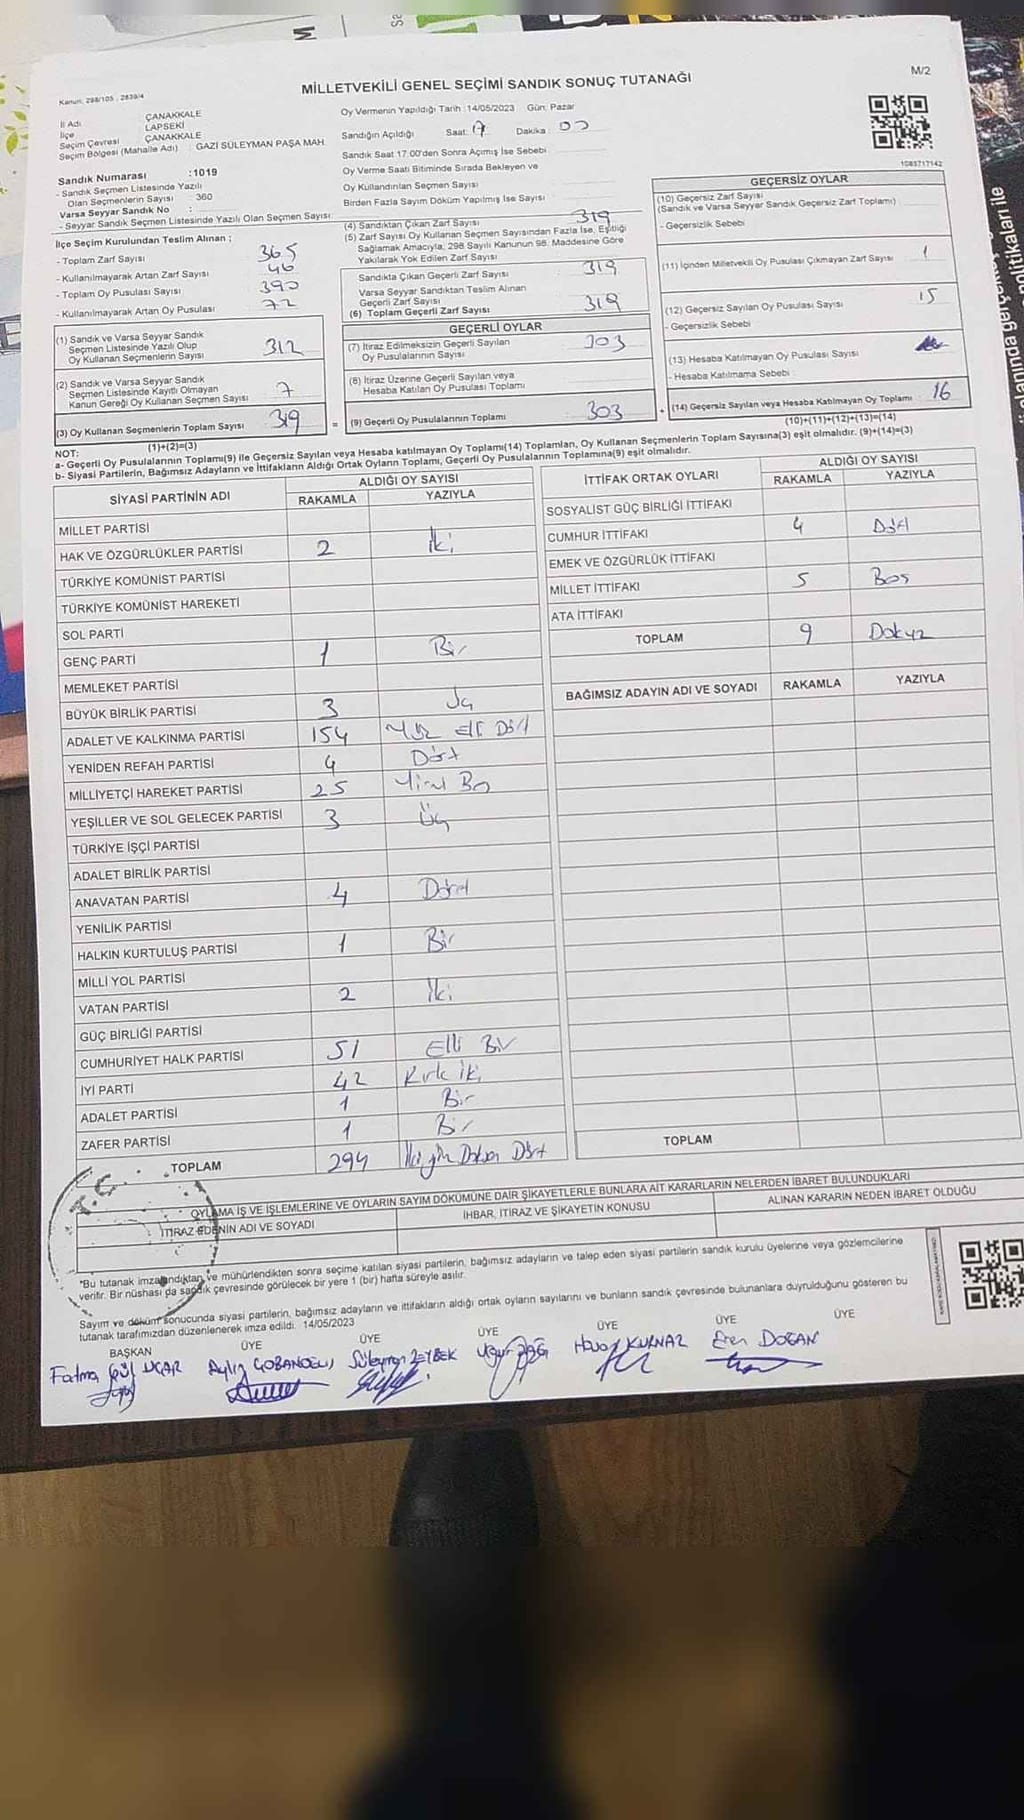 MİLLETVEKİLİ GENEL SEÇİMİ SANDIK SONUÇ TUTANAĞI
M/2
Kanun: 298/105 , 2839/4
İl Adı ÇANAKKALE
İlçe LAPSEKİ
Seçim Çevresi ÇANAKKALE
Seçim Bölgesi (Mahalle Adı) : GAZİ SÜLEYMAN PAŞA MAH.
Sandık Numarası :1019
- Sandık Seçmen Listesinde Yazılı
Olan Seçmenlerin Sayısı : 360
Varsa Seyyar Sandık No :
- Seyyar Sandık Seçmen Listesinde Yazılı Olan Seçmen Sayısı:
İlçe Seçim Kurulundan Teslim Alınan ;
- Toplam Zarf Sayısı 365
- Kullanılmayarak Artan Zarf Sayısı 46
- Toplam Oy Pusulası Sayısı 390
- Kullanılmayarak Artan Oy Pusulası 72
(1) Sandık ve Varsa Seyyar Sandık
Seçmen Listesinde Yazılı Olup
Oy Kullanan Seçmenlerin Sayısı 312
(2) Sandık ve Varsa Seyyar Sandık
Seçmen Listesinde Kayıtlı Olmayan
Kanun Gereği Oy Kullanan Seçmen Sayısı 7
(3) Oy Kullanan Seçmenlerin Toplam Sayısı 319
(1)+(2)=(3)
Oy Vermenin Yapıldığı Tarih :14/05/2023 Gün: Pazar
Sandığın Açıldığı Saat: 17 Dakika: 00
Sandık Saat 17.00'den Sonra Açılmış İse Sebebi
Oy Verme Saati Bitiminde Sırada Bekleyen ve
Oy Kullandırılan Seçmen Sayısı
Birden Fazla Sayım Döküm Yapılmış İse Sayısı
(4) Sandıktan Çıkan Zarf Sayısı 319
(5) Zarf Sayısı Oy Kullanan Seçmen Sayısından Fazla İse, Eşitliği
Sağlamak Amacıyla; 298 Sayılı Kanunun 98. Maddesine Göre
Yakılarak Yok Edilen Zarf Sayısı
Sandıkta Çıkan Geçerli Zarf Sayısı 319
Varsa Seyyar Sandıktan Teslim Alınan
Geçerli Zarf Sayısı
(6) Toplam Geçerli Zarf Sayısı 319
GEÇERLİ OYLAR
(7) İtiraz Edilmeksizin Geçerli Sayılan
Oy Pusulalarının Sayısı 303
(8) İtiraz Üzerine Geçerli Sayılan veya
Hesaba Katılan Oy Pusulası Toplamı
= (9) Geçerli Oy Pusulalarının Toplamı 303 +
1085717142
GEÇERSİZ OYLAR
(10) Geçersiz Zarf Sayısı
(Sandık ve Varsa Seyyar Sandık Geçersiz Zarf Toplamı)
- Geçersizlik Sebebi
(11) İçinden Milletvekili Oy Pusulası Çıkmayan Zarf Sayısı 1
(12) Geçersiz Sayılan Oy Pusulası Sayısı 15
- Geçersizlik Sebebi
(13) Hesaba Katılmayan Oy Pusulası Sayısı
- Hesaba Katılmama Sebebi :
(14) Geçersiz Sayılan veya Hesaba Katılmayan Oy Toplamı 16
(10)+(11)+(12)+(13)=(14)
NOT:
a- Geçerli Oy Pusulalarının Toplamı(9) ile Geçersiz Sayılan veya Hesaba katılmayan Oy Toplamı(14) Toplamları, Oy Kullanan Seçmenlerin Toplam Sayısına(3) eşit olmalıdır. (9)+(14)=(3)
b- Siyasi Partilerin, Bağımsız Adayların ve İttifakların Aldığı Ortak Oyların Toplamı, Geçerli Oy Pusulalarının Toplamına(9) eşit olmalıdır.
SİYASİ PARTİNİN ADI ALDIĞI OY SAYISI
RAKAMLA YAZIYLA
MİLLET PARTİSİ
HAK VE ÖZGÜRLÜKLER PARTİSİ 2 İki
TÜRKİYE KOMÜNİST PARTİSİ
TÜRKİYE KOMÜNİST HAREKETİ
SOL PARTİ
GENÇ PARTİ 1 Bir
MEMLEKET PARTİSİ
BÜYÜK BİRLİK PARTİSİ 3 Üç
ADALET VE KALKINMA PARTİSİ 154 Yüz Elli Dört
YENİDEN REFAH PARTİSİ 4 Dört
MİLLİYETÇİ HAREKET PARTİSİ 25 Yirmi Beş
YEŞİLLER VE SOL GELECEK PARTİSİ 3 Üç
TÜRKİYE İŞÇİ PARTİSİ
ADALET BİRLİK PARTİSİ
ANAVATAN PARTİSİ 4 Dört
YENİLİK PARTİSİ
HALKIN KURTULUŞ PARTİSİ 1 Bir
MİLLİ YOL PARTİSİ
VATAN PARTİSİ 2 İki
GÜÇ BİRLİĞİ PARTİSİ
CUMHURİYET HALK PARTİSİ 51 Elli Bir
İYİ PARTİ 42 Kırk iki
ADALET PARTİSİ 1 Bir
ZAFER PARTİSİ 1 Bir
TOPLAM 294 İkiyüz Doksan Dört
İTTİFAK ORTAK OYLARI ALDIĞI OY SAYISI
RAKAMLA YAZIYLA
SOSYALİST GÜÇ BİRLİĞİ İTTİFAKI
CUMHUR İTTİFAKI 4 Dört
EMEK VE ÖZGÜRLÜK İTTİFAKI
MİLLET İTTİFAKI 5 Beş
ATA İTTİFAKI
TOPLAM 9 Dokuz
BAĞIMSIZ ADAYIN ADI VE SOYADI RAKAMLA YAZIYLA
TOPLAM
T.C.
OYLAMA İŞ VE İŞLEMLERİNE VE OYLARIN SAYIM DÖKÜMÜNE DAİR ŞİKAYETLERLE BUNLARA AİT KARARLARIN NELERDEN İBARET BULUNDUKLARI
İTİRAZ EDENİN ADI VE SOYADI İHBAR, İTİRAZ VE ŞİKAYETİN KONUSU ALINAN KARARIN NEDEN İBARET OLDUĞU
*Bu tutanak imzalandıktan ve mühürlendikten sonra seçime katılan siyasi partilerin, bağımsız adayların ve talep eden siyasi partilerin sandık kurulu üyelerine veya gözlemcilerine
verilir. Bir nüshası da sandık çevresinde görülecek bir yere 1 (bir) hafta süreyle asılır.
Sayım ve döküm sonucunda siyasi partilerin, bağımsız adayların ve ittifakların aldığı ortak oyların sayılarını ve bunların sandık çevresinde bulunanlara duyrulduğunu gösteren bu
tutanak tarafımızdan düzenlenerek imza edildi. 14/05/2023
BAŞKAN ÜYE ÜYE ÜYE ÜYE ÜYE ÜYE
Fatma Gül UÇAR Aylin ÇOBANOĞLU Süleyman ZEYBEK Uğur Hava KURNAZ Eren DOĞAN
politikaları ile